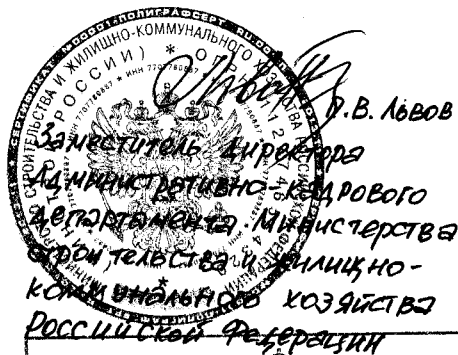 П.В. Львов
Заместитель директора
Административно-кадрового
департамента Министерства
строительства и жилищно-
коммунального хозяйства
Российской Федерации
СЕРТИФИКАТ №00001·ПОЛИГРАФСЕРТ
СТРОИТЕЛЬСТВА И ЖИЛИЩНО-КОММУНАЛЬНОГО ХОЗЯЙСТВА
РОССИИ) * ОГРН
* ИНН 7707780887